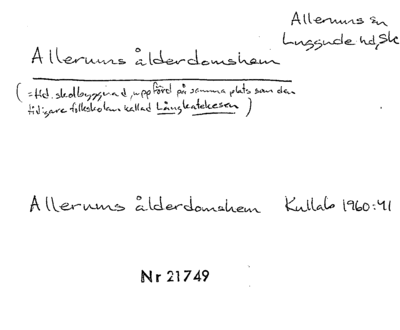 Allerums sn
Luggude hd, Sk
Allerums ålderdomshem
(=tid. skolbyggnad, uppförd på samma plats som den
tidigare folkskolan kallad Långkatekesen)
Allerums ålderdomshem Kullabo 1960:41
Nr 21749